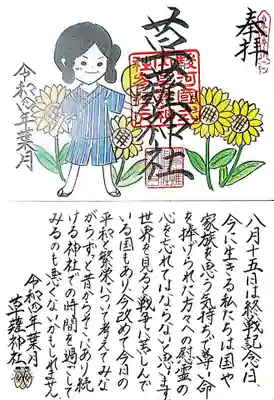 奉拝
草薙神社
令和四年葉月
八月十五日は終戦記念日。
今に生きる私たちは国や
家族を思う気持ちで尊い命
を捧げられた方々への慰霊の
心を忘れてはならないと思います。
世界を見ると戦争で苦しんで
いる国もあり、今改めて今日の
平和と繁栄について考えてみな
がらずっと昔から今にあり続
ける神社での時間を過ごして
みるのも悪くないかもしれません。
令和四年葉月
草薙神社